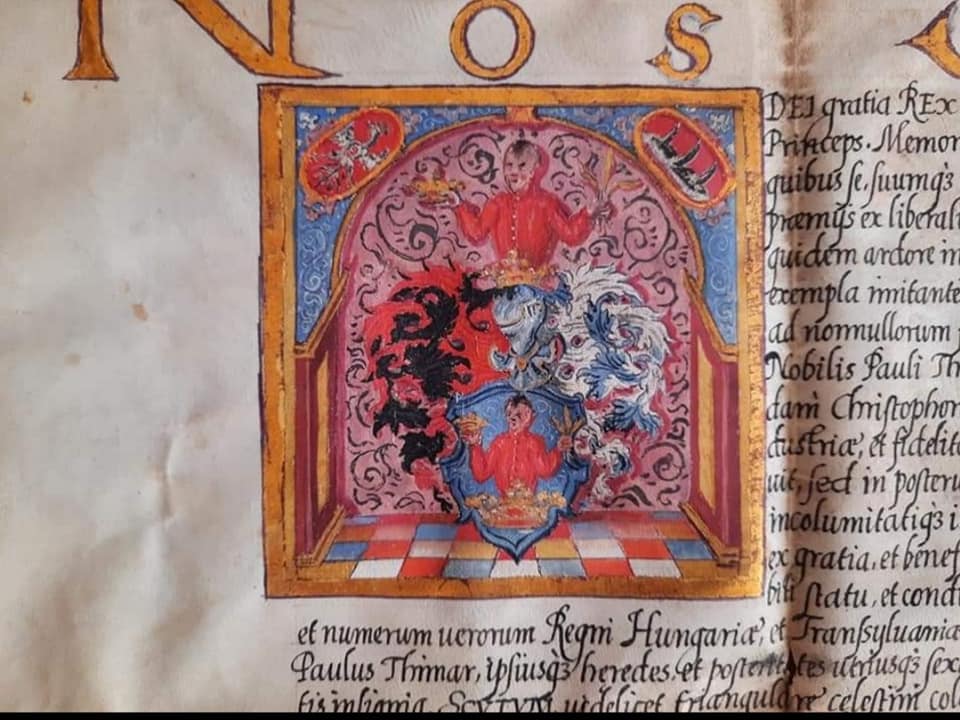 NOS
DEI gratia REX
Princeps. Memor
quibus se, suumq3
præmijs ex liberali
quidem ardore in
exempla imitante
ad nonnullorum
Nobilis Pauli Th
dam Christophor
dustriæ, et fidelit
uit, sed in posteru
incolumitatiq3 i
ex gratia, et benef
statu, et condi
et numerum uerorum Regni Hungariæ, et Transyluaniæ
Paulus Thimar, ipsiusq3 heredes et posteritates utriusq3 sex
tis insignia, SCVTVM uidelicet triangulare celestini col